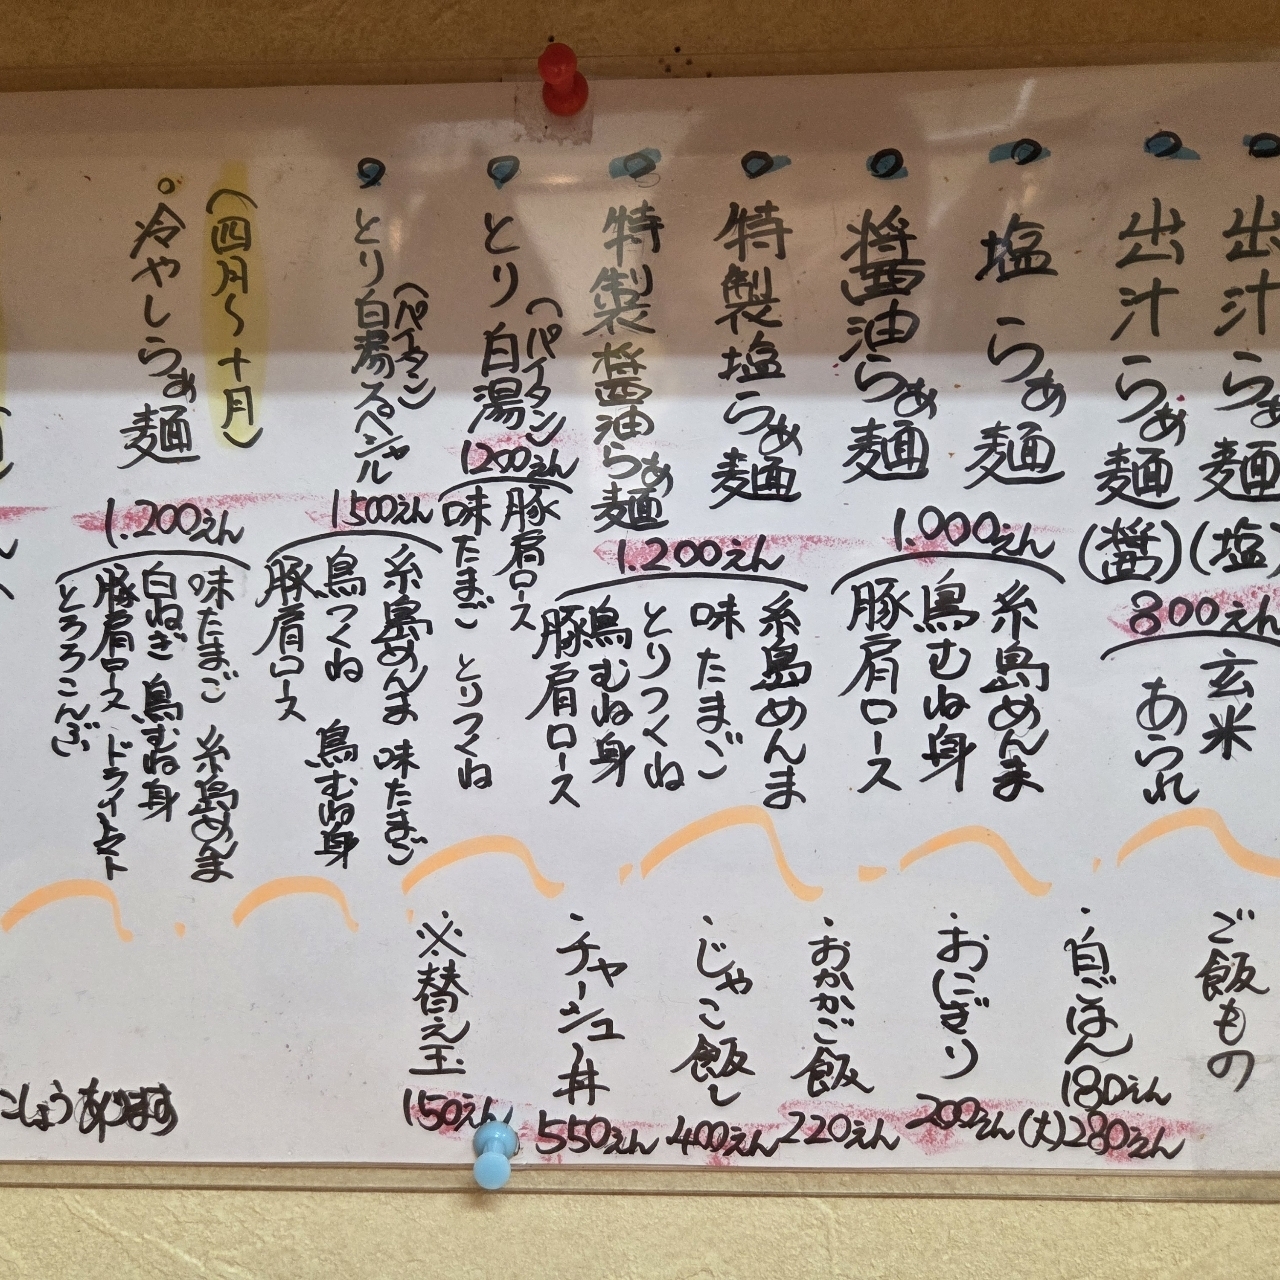 出汁らぁ麺(塩)
出汁らぁ麺(醤)
800えん
玄米
あられ
塩らぁ麺
醤油らぁ麺
1.000えん
糸島めんま
鳥むね身
豚肩ロース
特製塩らぁ麺
特製醤油らぁ麺
1.200えん
糸島めんま
味たまご
とりつくね
鳥むね身
豚肩ロース
とり白湯(パイタン)
1200えん
豚肩ロース
味たまご とりつくね
とり白湯スペシャル(パイタン)
1500えん
糸島めんま 味たまご
鳥つくね 鳥むね身
豚肩ロース
(四月〜十月)
冷やしらぁ麺
1.200えん
味たまご 糸島めんま
白ねぎ 鳥むね身
豚肩ロース ドライトマト
とろろこんぶ
ご飯もの
・白ごはん 180えん
(大)280えん
・おにぎり 200えん
・おかかご飯 220えん
・じゃこ飯 400えん
・チャーシュー丼 550えん
※替え玉 150えん
こしょうあります